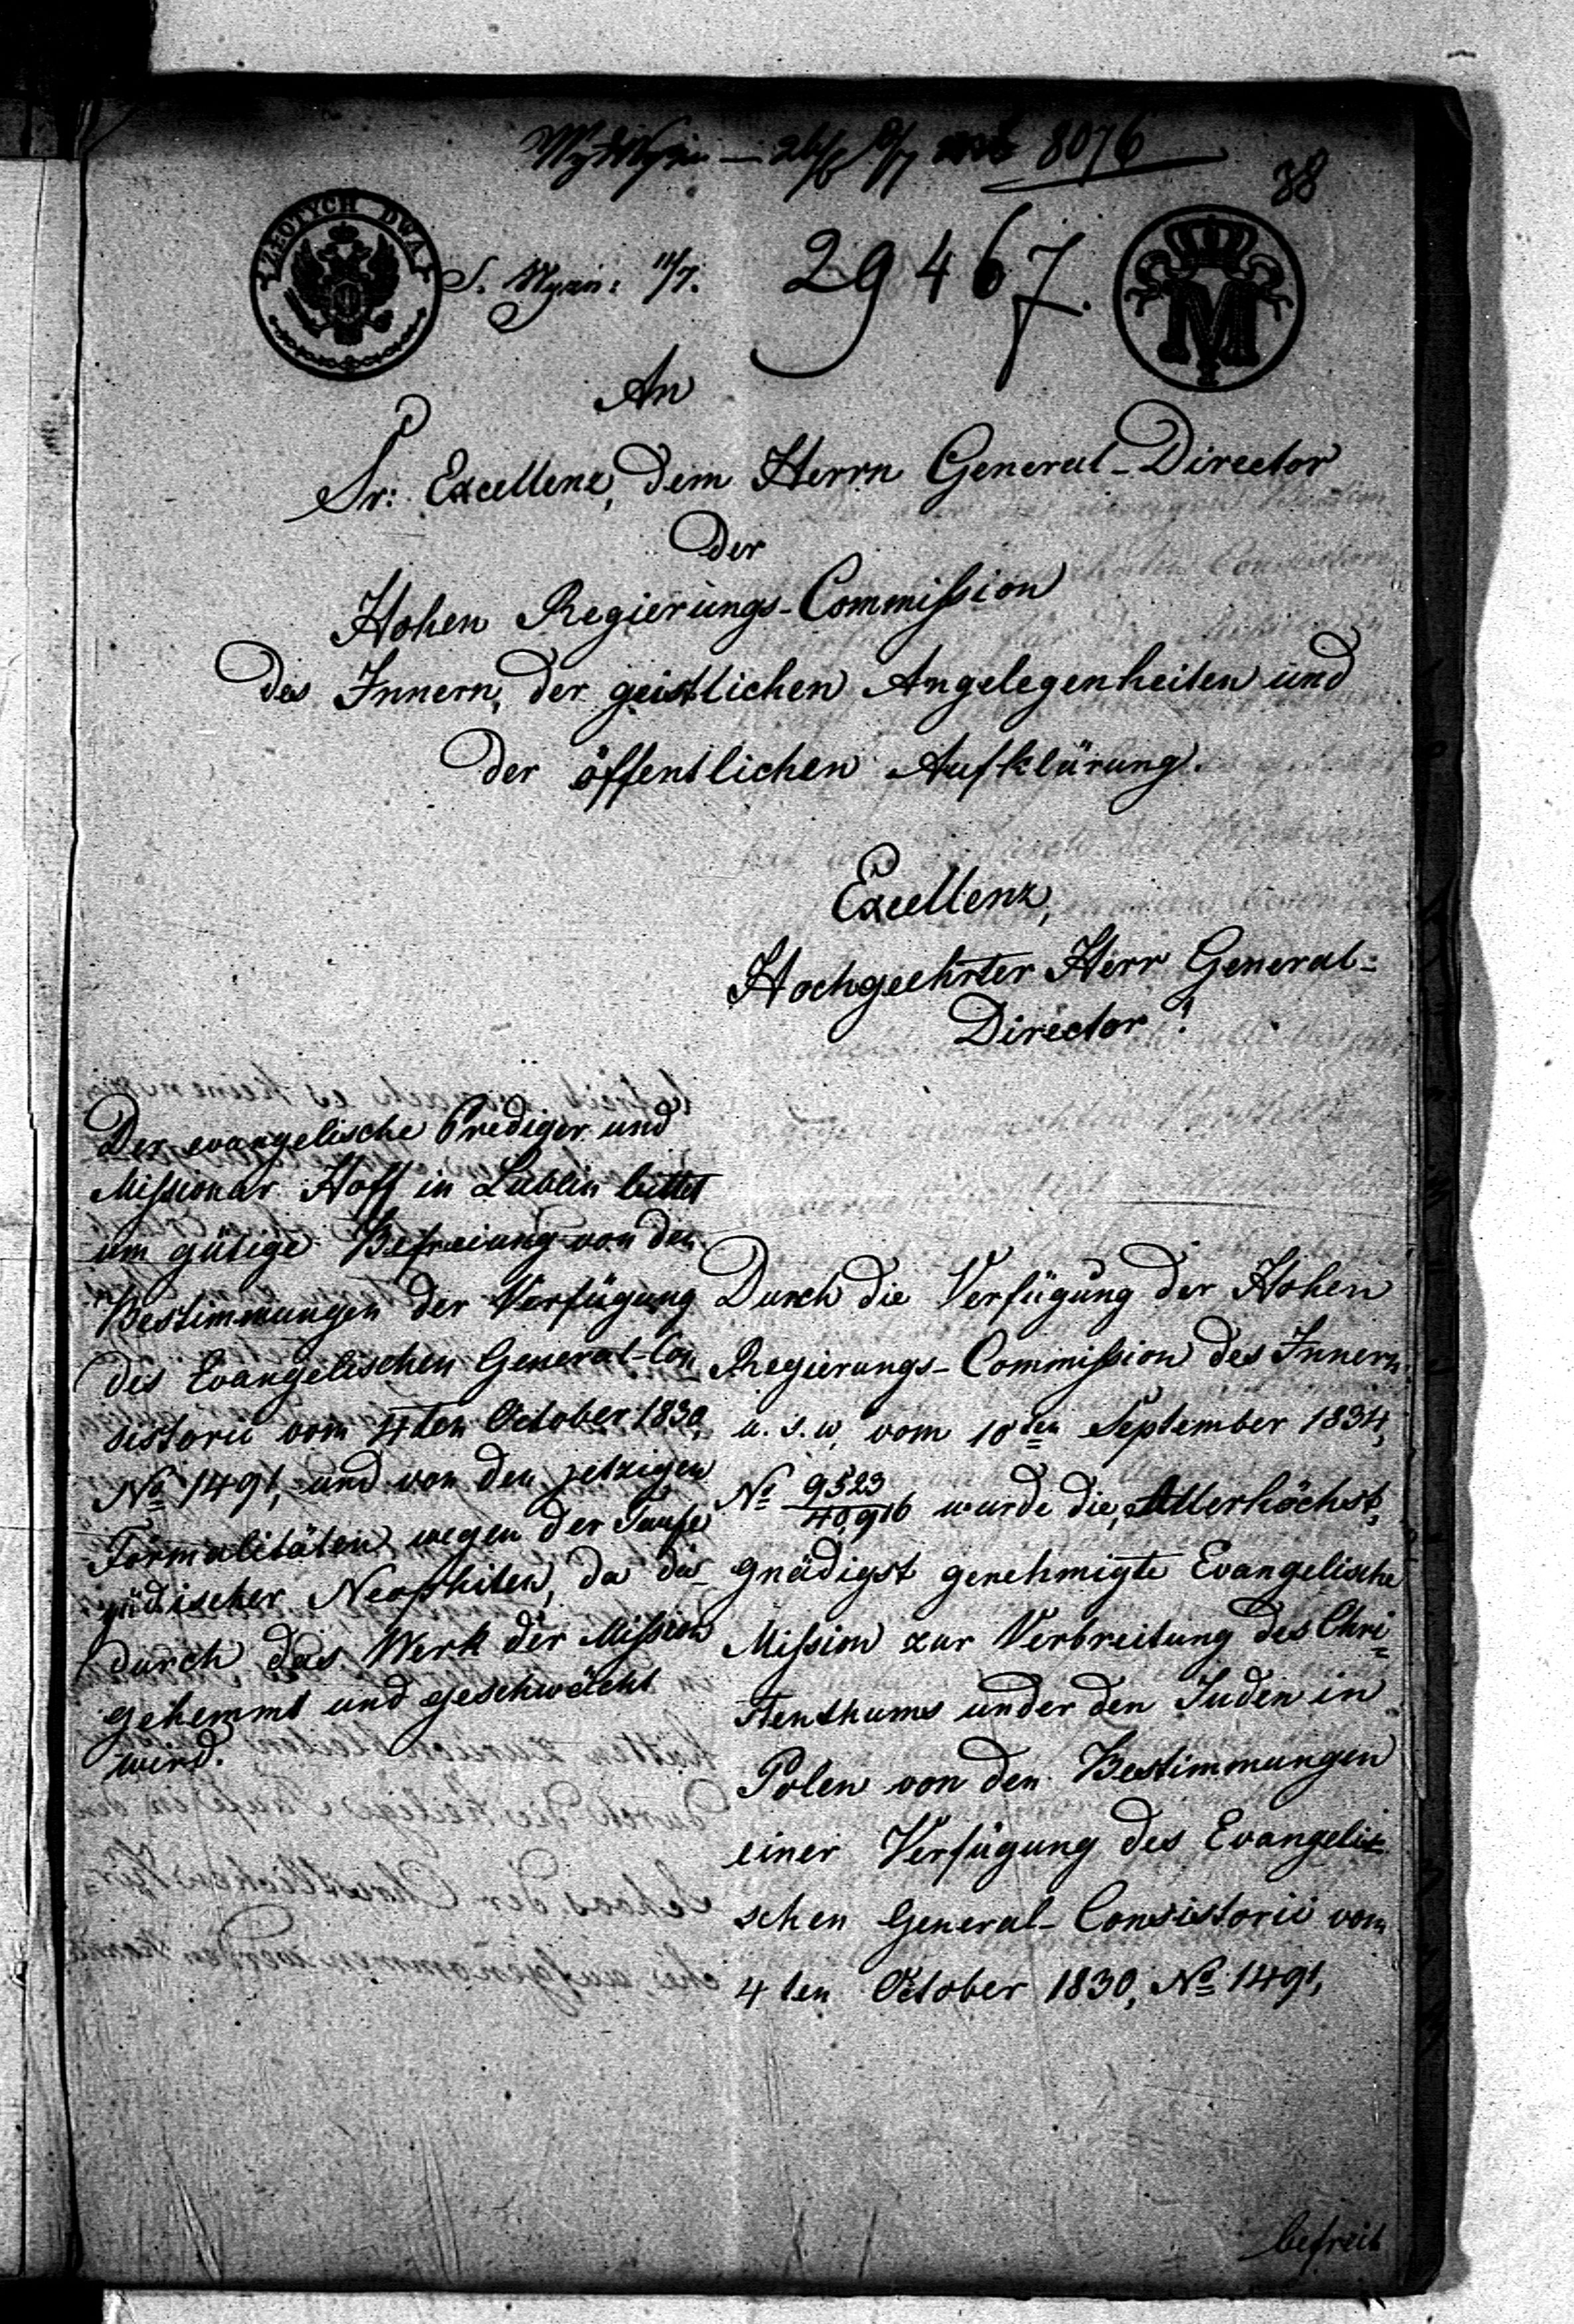 8076
38
ZŁOTYCH DWA
S. Wyzn: 11/7.
29467.
M
An
Sr: Excellenz, dem Herrn General-Director
der
Hohen Regierungs-Commißion
des Innern, der geistlichen Angelegenheiten und
der öffentlichen Aufklärung.
Excellenz,
Hochgeehrter Herr General-
Director!
Der evangelische Prediger und
Mißionar Hoff in Lublin bittet
um gütige Befreiung von den
Bestimmungen der Verfügung
des Evangelischen General-Con
sistorii vom 4ten October 1830,
No 1491, und von den jetzigen
Formalitäten wegen der Taufe
jüdischer Neophiten, da da-
durch das Werk der Mißion
gehemmt und geschwächt
wird.
Durch die Verfügung der Hohen
Regierungs-Commißion des Innern
u. s. w. vom 10ten September 1834,
No 9523/40,916 wurde die, Allerhöchst,
gnädigst genehmigte Evangelische
Mißion zur Verbreitung des Chri-
stenthums under den Juden in
Polen von den Bestimmungen
einer Verfügung des Evangelis-
schen General-Consistorii vom
4ten October 1830, No 1491,
befreit